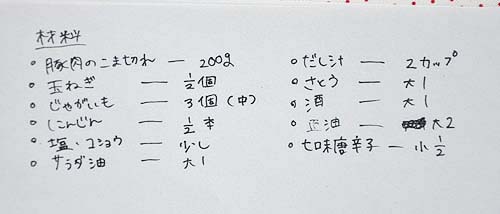 材料
・豚肉のこま切れ — 200g
・玉ねぎ — 1/2個
・じゃがいも — 3個(中)
・にんじん — 1/2本
・塩・コショウ — 少し
・サラダ油 — 大1
・だし汁 — 2カップ
・さとう — 大1
・酒 — 大1
・正油 — 大2
・七味唐辛子 — 小1/2